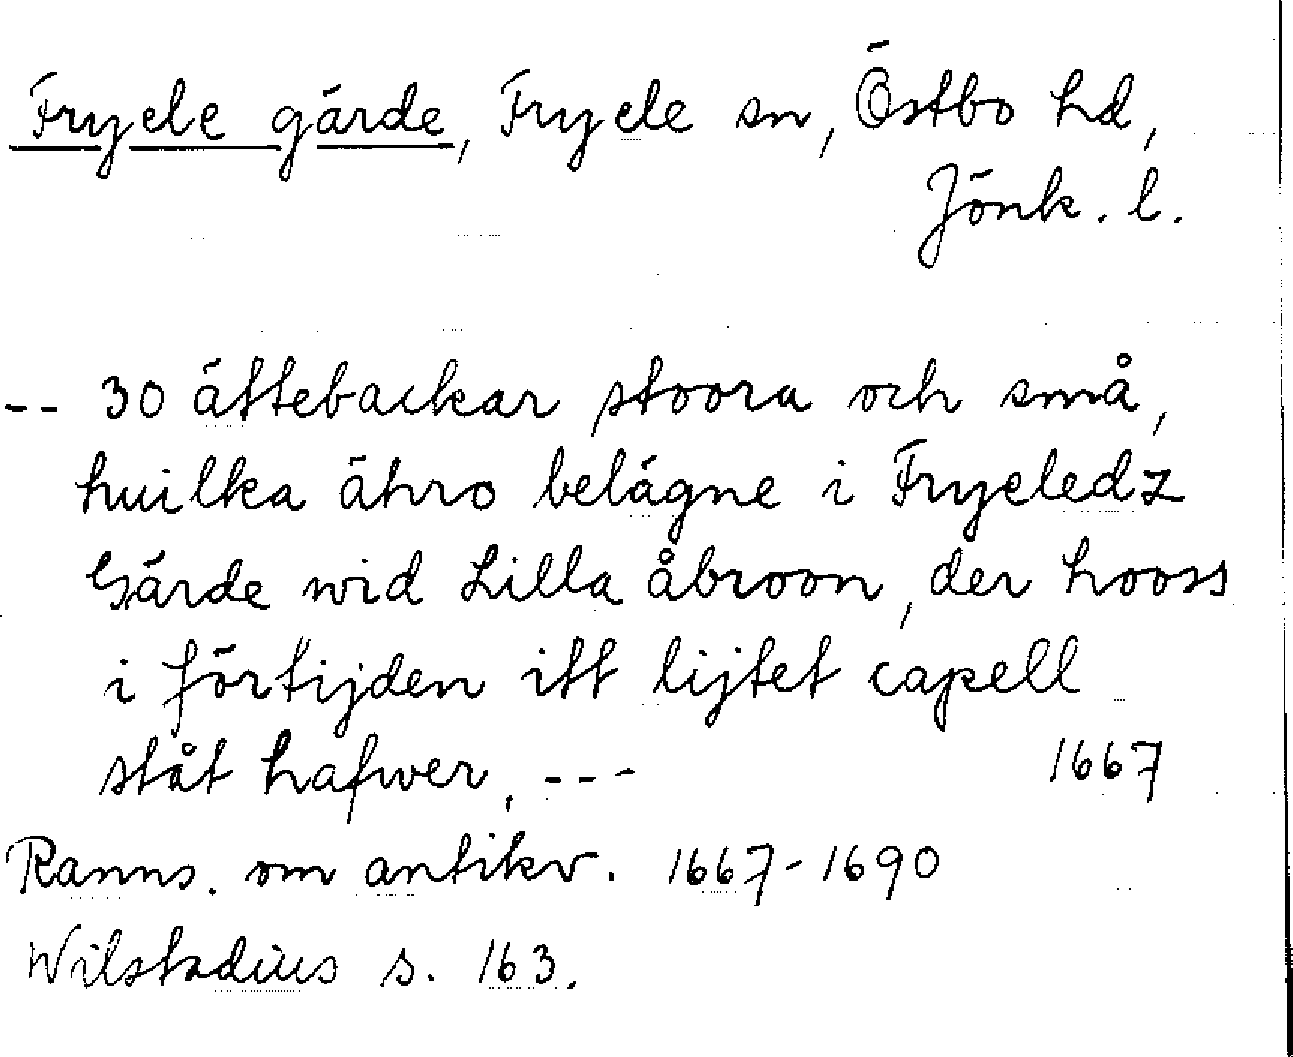 Fryele gärde, Fryele sn, Östbo hd,
Jönk. l.
-- 30 ättebackar stoora och små,
huilka ähro belägne i Fryeledz
Gärde wid Lilla åbroon, der hooss
i förtijden itt lijtet capell
ståt hafwer, ---
1667
Ranns. om antikv. 1667-1690
Wilstadius s. 163.